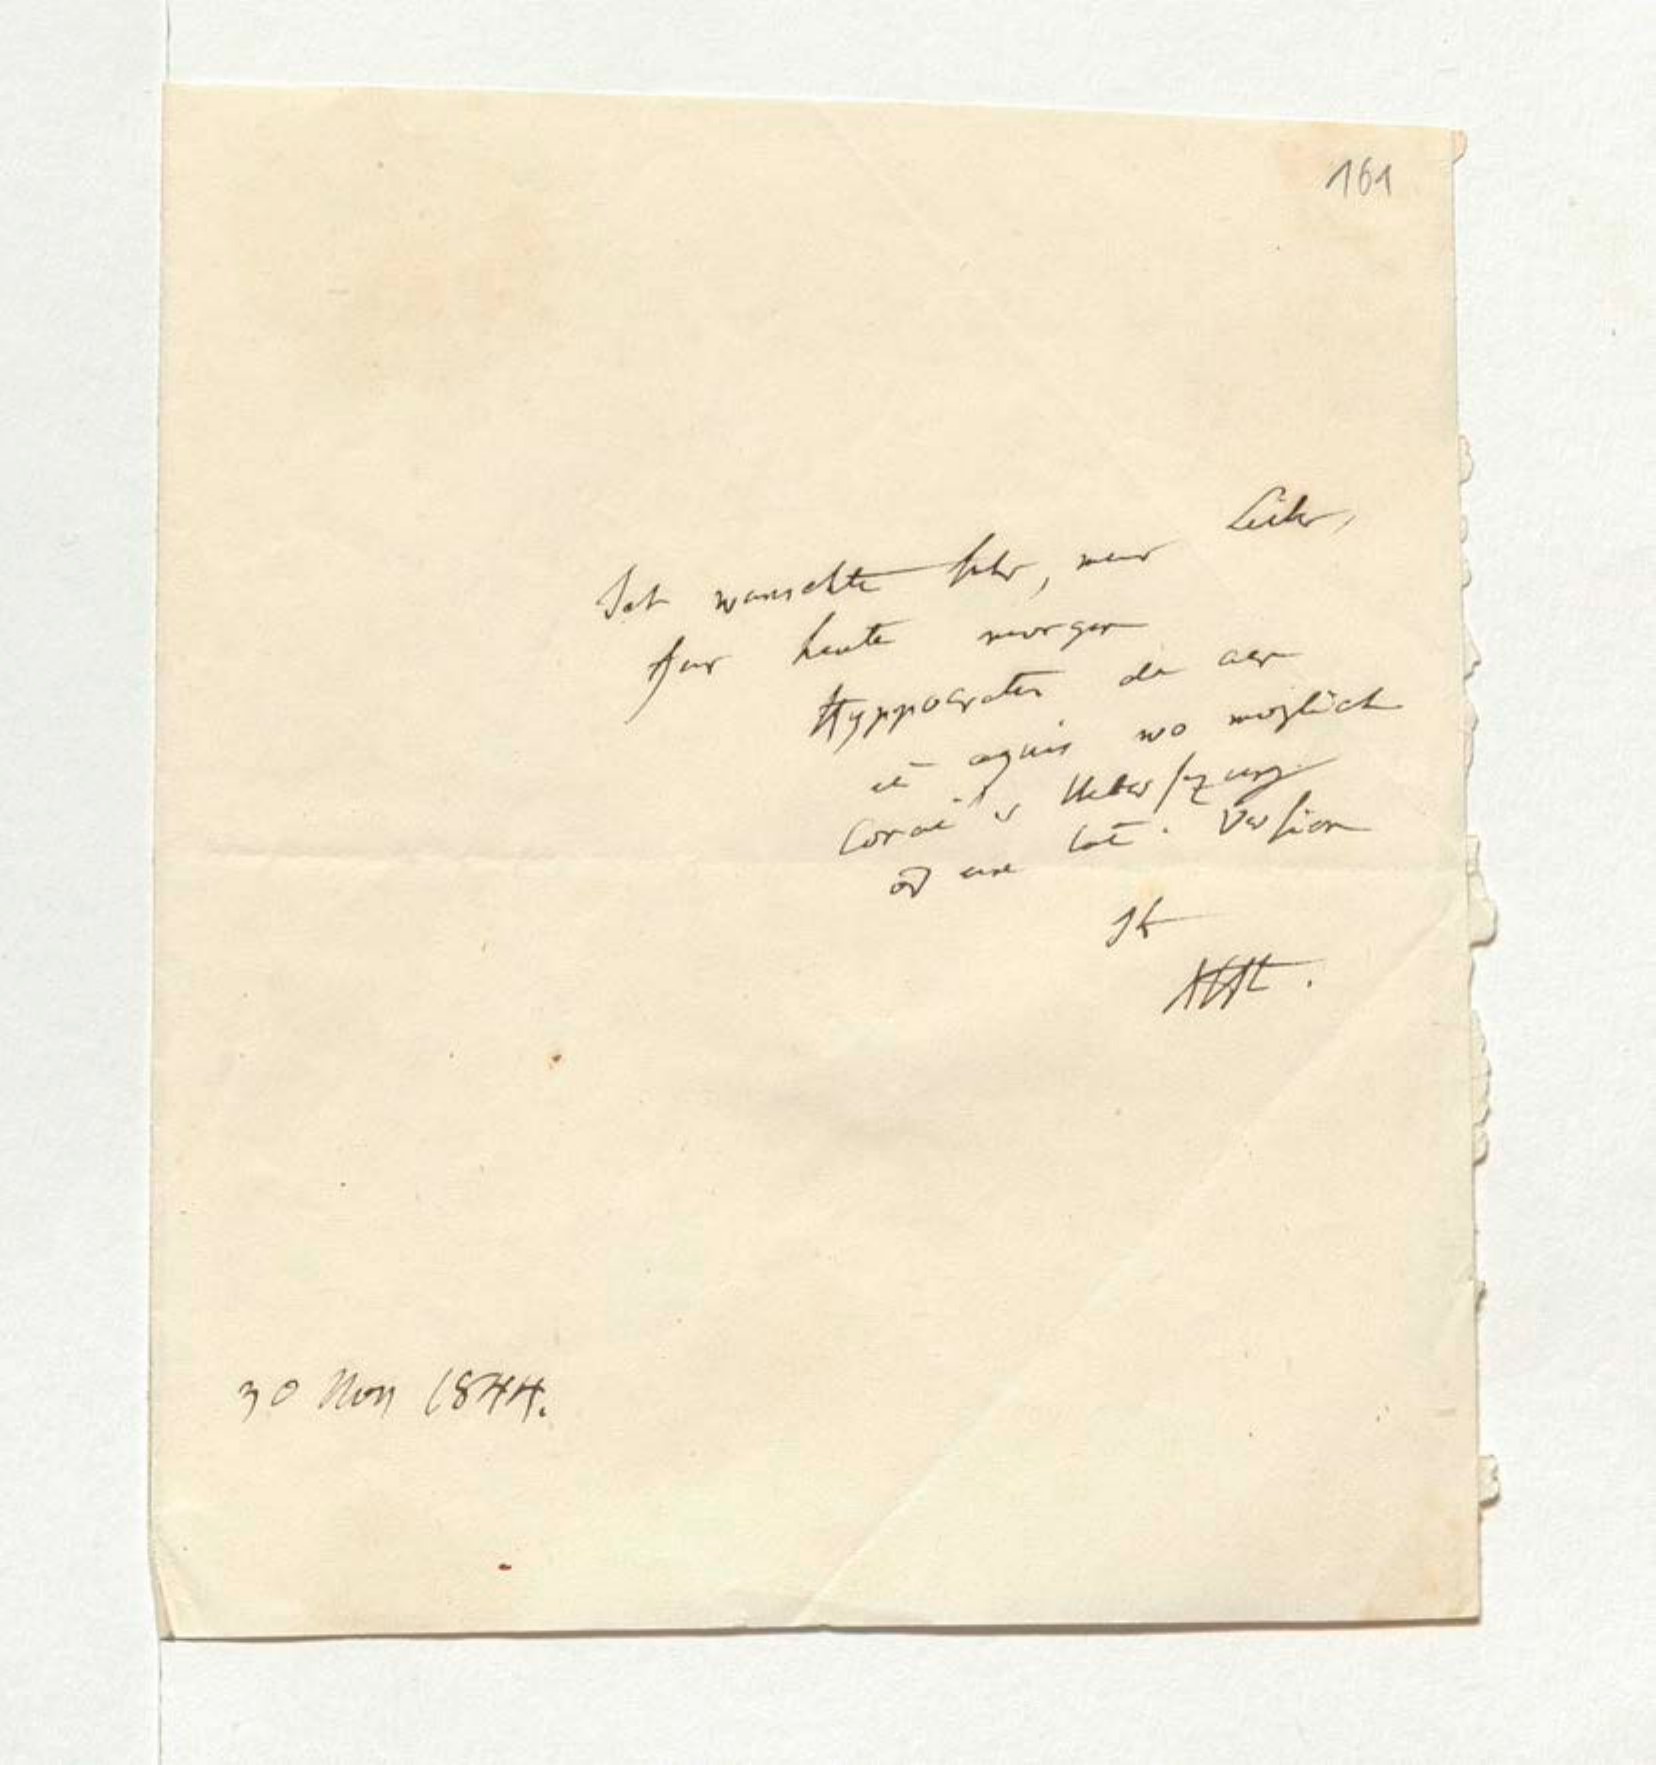 161
Ich wünschte sehr, mein Lieber,
für heute morgen
Hyppocrates de aer
et aquis wo möglich
Coraë's Ueberszung
od eine lat. Version
Ihr
AHt.
30 Nov 1844.